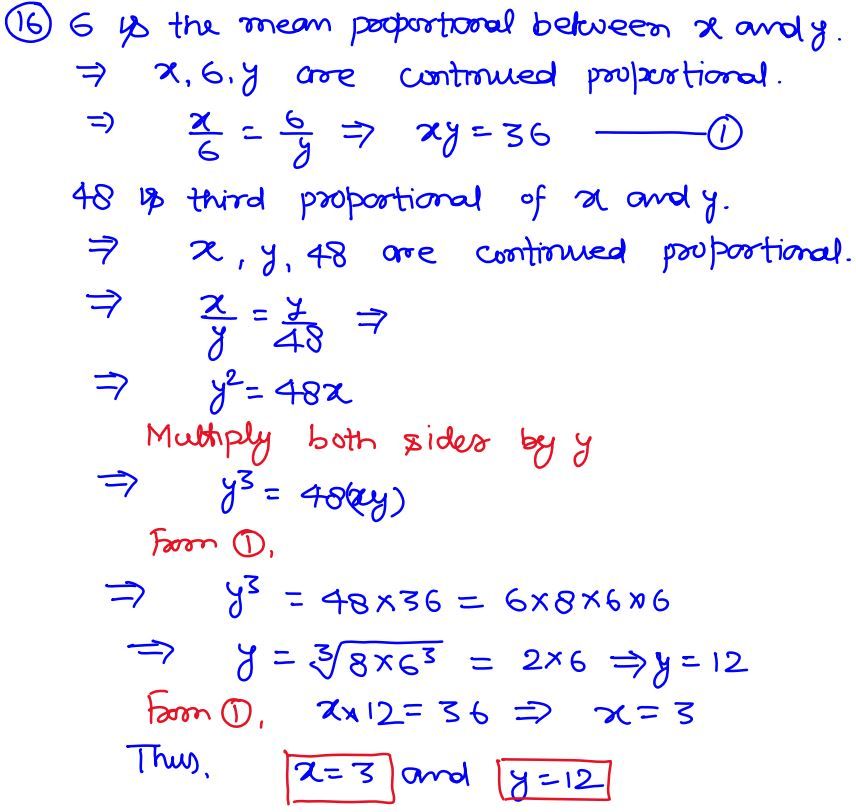 (16) 6 is the mean proportional between x and y.
⇒ x, 6, y are continued proportional.
⇒ x/6 = 6/y ⇒ xy = 36 ——— (1)
48 is third proportional of x and y.
⇒ x, y, 48 are continued proportional.
⇒ x/y = y/48 ⇒
⇒ y² = 48x
Multiply both sides by y
⇒ y³ = 48(xy)
From (1),
⇒ y³ = 48×36 = 6×8×6×6
⇒ y = ∛(8×6³) = 2×6 ⇒ y = 12
From (1), x×12 = 36 ⇒ x = 3
Thus, x = 3 and y = 12